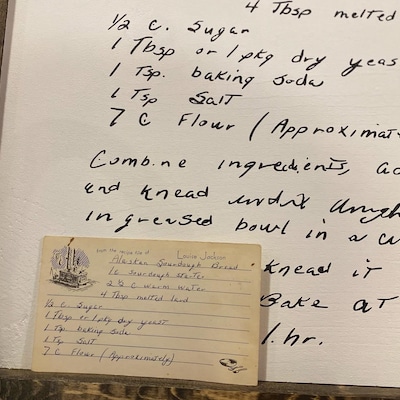 4 Tbsp melted
1/2 C. Sugar
1 Tbsp or 1 pkg dry yeas
1 Tsp. baking soda
1 Tsp Salt
7 C Flour (Approximat
Combine ingredients, ad
and knead until dough
in greased bowl in a w
knead it
Bake at
1 hr.
from the recipe file of Louise Jackson
Alaskan Sourdough Bread
1 C sourdough starter
2 1/2 C warm water
4 Tbsp melted lard
1/2 C. Sugar
1 Tbsp or 1 pkg dry yeast
1 Tsp baking soda
1 Tsp Salt
7 C Flour (Approximately)